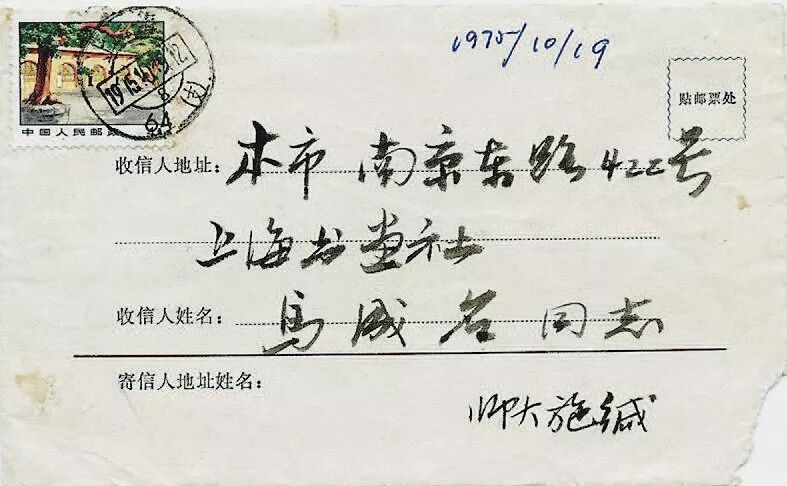 1975/10/19
贴邮票处
中国人民邮
收信人地址：本市南京东路422号
上海书画社
收信人姓名：马成名同志
寄信人地址姓名：
师大施缄